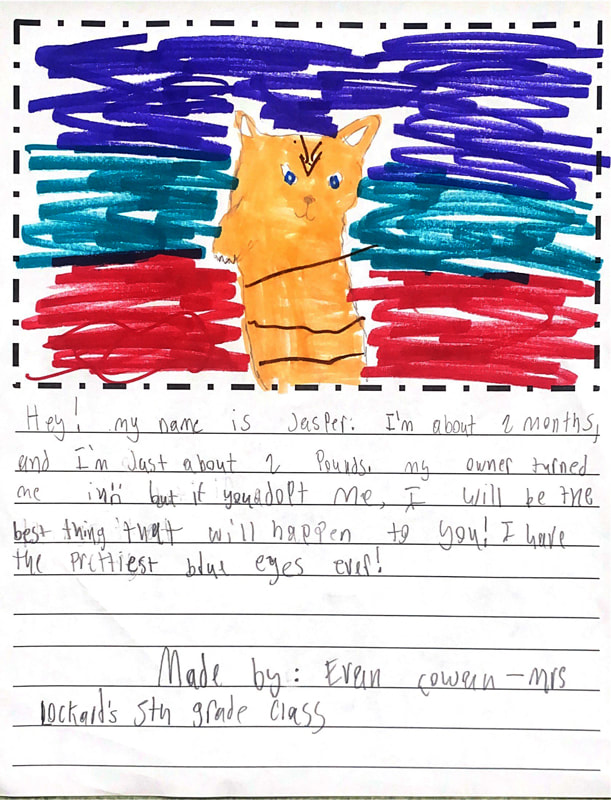 Hey! my name is Jasper. I'm about 2 months,
and I'm Just about 2 Pounds. my owner turned
me in!! but if you adopt Me, I will be the
best thing that will happen to you! I have
the prettiest blue eyes ever!
Made by: Evan cowan - Mrs
Lockard's 5th grade Class